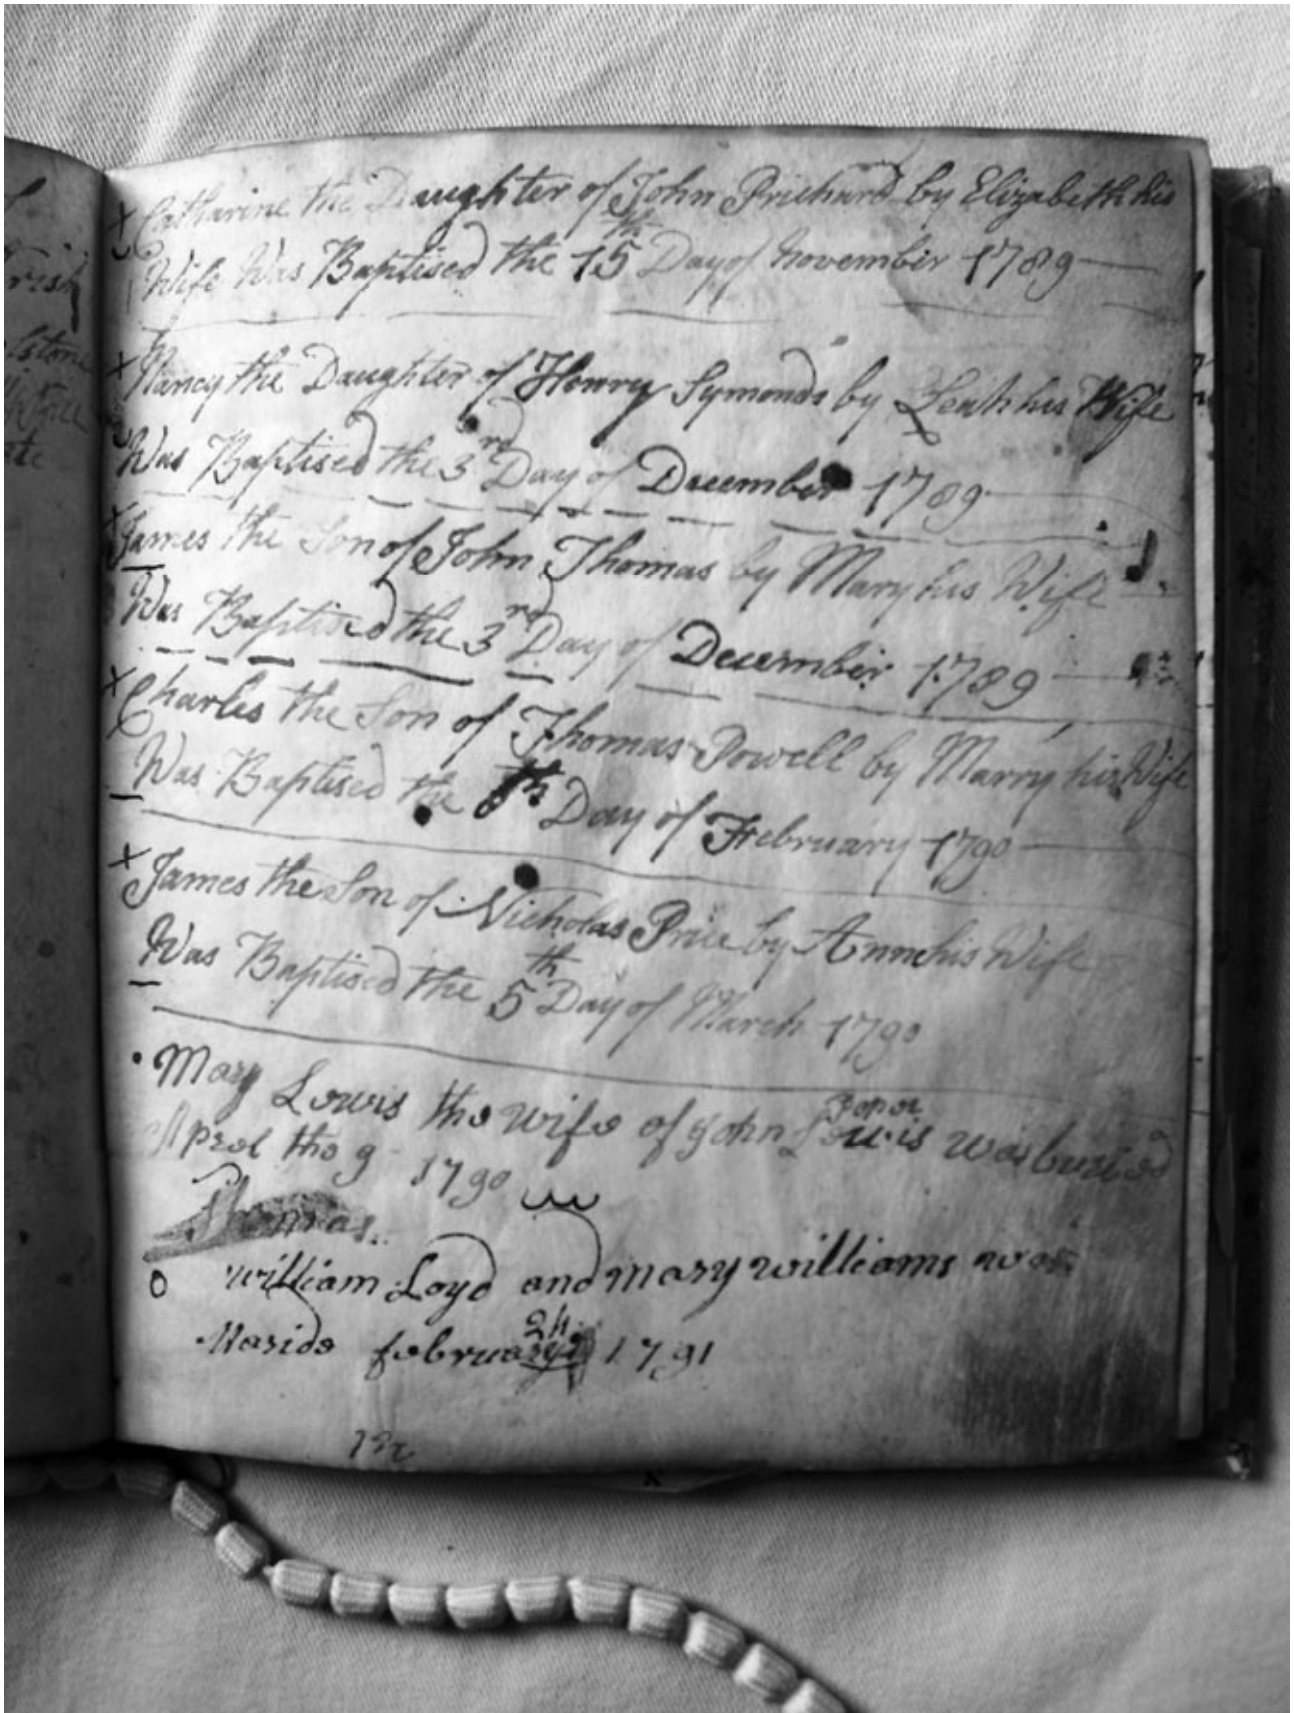 Catharine the Daughter of John Prichard by Elizabeth his
Wife Was Baptised the 15th Day of November 1789
Nancy the Daughter of Henry Symonds by Leah his Wife
Was Baptised the 3rd Day of December 1789
James the Son of John Thomas by Mary his Wife
Was Baptised the 3rd Day of December 1789
Charles the Son of Thomas Powell by Marry his Wife
Was Baptised the th Day of February 1790
James the Son of Nicholas Price by Ann his Wife
Was Baptised the 5th Day of March 1790
Mary Lewis the wife of John Lewis was buried
Aprel the 9 1790
Thomas
william Loyd and mary williams was
Maride february 1791